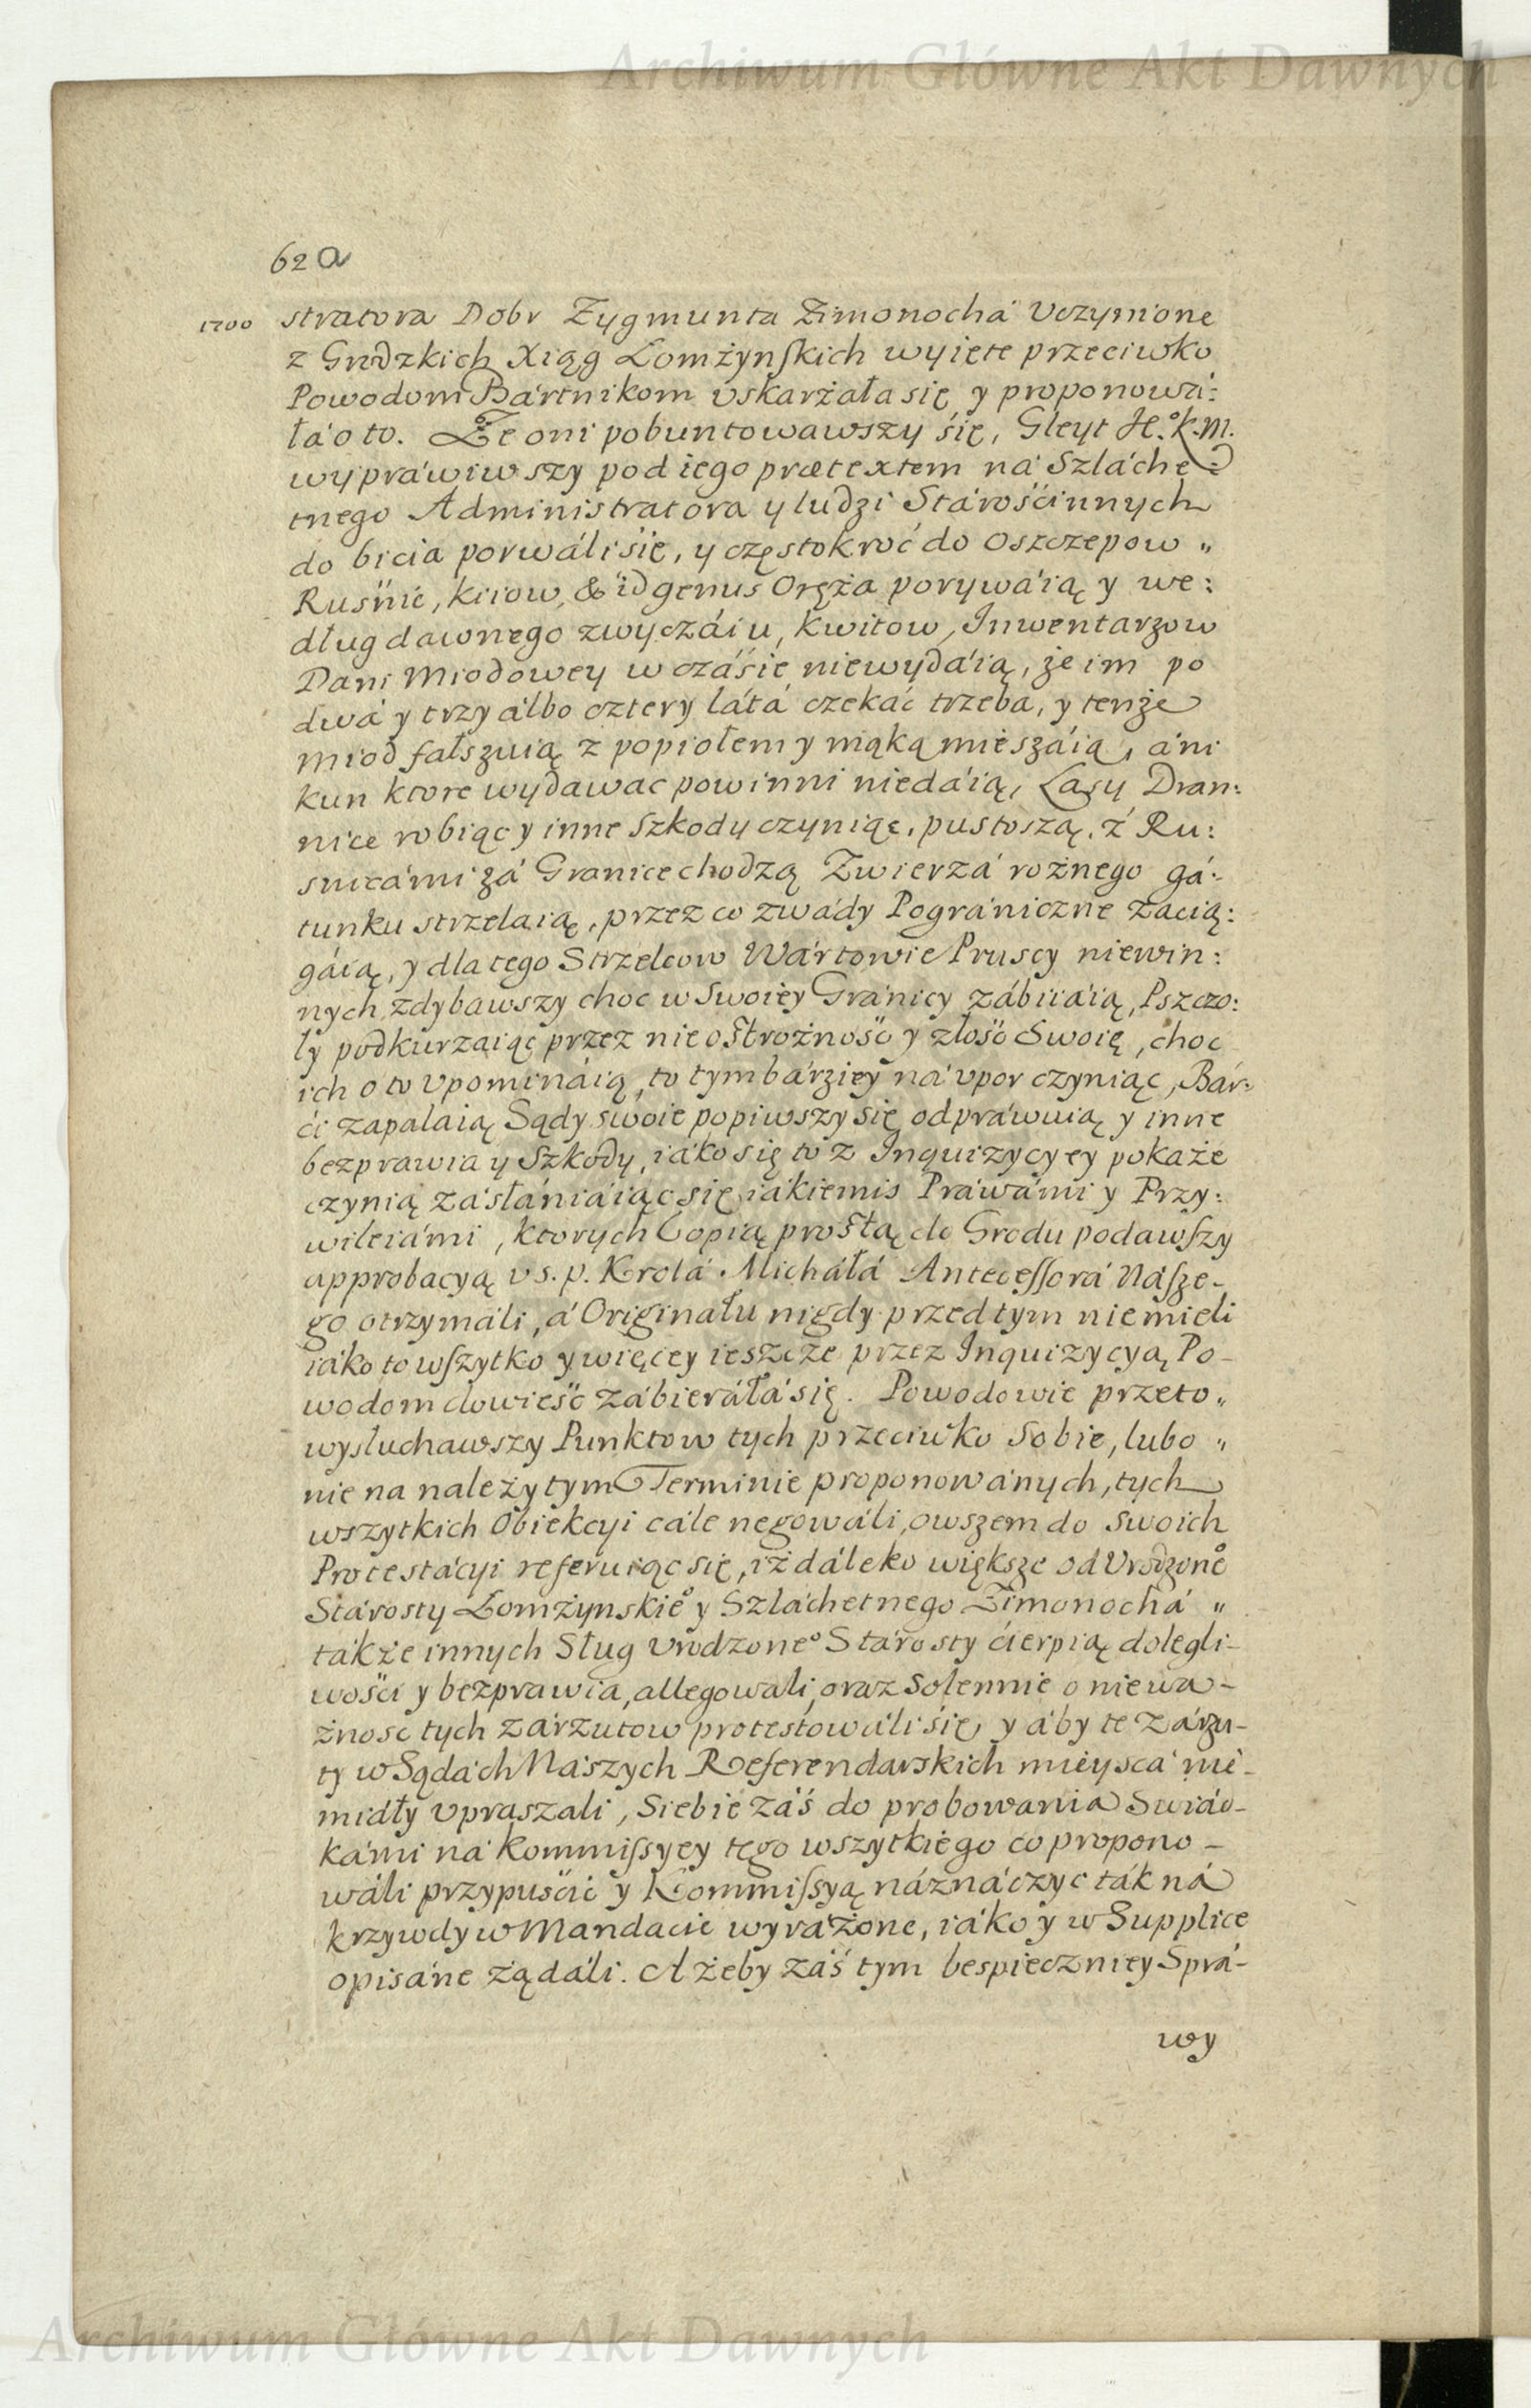 Archiwum Główne Akt Dawnych
62 a
1700 stratora Dobr Zygmunta Zimonochá Uczynione
z Grodzkich Xiąg Łomżynſkich wyięte przeciwko
Powodom Bártnikom uskarżała się y proponowá:
łá o to. Że oni pobuntowawszy się, Gleyt J.º K. M.
wypráwiwszy pod iego prætextem ná Szláche:
tnego Administratora y ludzi Stárośćinnych
do bicia porwáli się, y częstokroć do Oszczepow "
Ruśnic, kiiow, & id genus Oręża porywáią y we:
dług dawnego zwyczáiu, kwitow, Inwentarzow
Dani Miodowey w czáśie niewydáią, że im po
dwá y trzy álbo cztery látá czekáć trzeba, y tenże
miod fałszuią z popiołem y mąką mieszáią, áni
kun ktore wydawac powinni niedáią, Lasy Dran:
nice robiąc y inne Szkody czyniąc, pustoszą, z Ru:
snicámi zá Granice chodzą Zwierzá rożnego gá:
tunku strzelaią, przez co zwády Pográniczne zacią:
gáią, y dla tego Strzelcow Wártowie Pruscy niewin:
nych zdybawszy choc w Swoiey Gránicy zábiiáią, Pszczo:
ły podkurzáiąc przez nie ostrożność y złość Swoię, choc
ich o to upomináią, to tym bárziey ná upor czyniąc, Bár:
ći zapalaią Sądy swoie popiwszy się odpráwuią y inne
bezprawia y Szkody, iáko się to z Inquizycyey pokaże
czynią zásłániáiąc się iákiemis Práwámi y Przy:
wileiámi, ktorych Copią prostą do Grodu podawſzy
approbacyą u s. p. Krolá Micháłá Anteceſſorá Náſze-
go otrzymáli, á Originału nigdy przedtym niemieli
iáko to wſzytko y więcey ieszcze przez Inquizycyą Po-
wodom dowieść zábieráłá się. Powodowie przeto "
wysłuchawszy Punktow tych przeciwko Sobie, lubo "
nie na należytym Terminie proponowánych, tych
wszytkich Obiekcyi cále negowáli, owszem do swoich
Protestácyi referuiąc się, iż dáleko większe od Urodzoneº
Stárosty Łomżynskieº y Szláchetnego Zimonochá "
tákże innych Sług Urodzoneº Stárosty ćierpią dolegli-
wośći y bezprawia, allegowali, oraz Solennie o niewa-
żnosc tych zárzutow protestowáli się, y áby te zárzu-
ty w Sądách Nászych Referendarskich mieysca nie-
miáły upraszali, Siebie záś do probowania Swiád-
kámi ná Kommiſsyey tego wszytkiego co propono-
wáli przypuśćić y Kommiſsyą náznáczyc ták ná
krzywdy w Mandacie wyráżone, iáko y w Supplice
opisáne żądáli. A żeby záś tym bespieczniey Sprá-
wy
Archiwum Główne Akt Dawnych